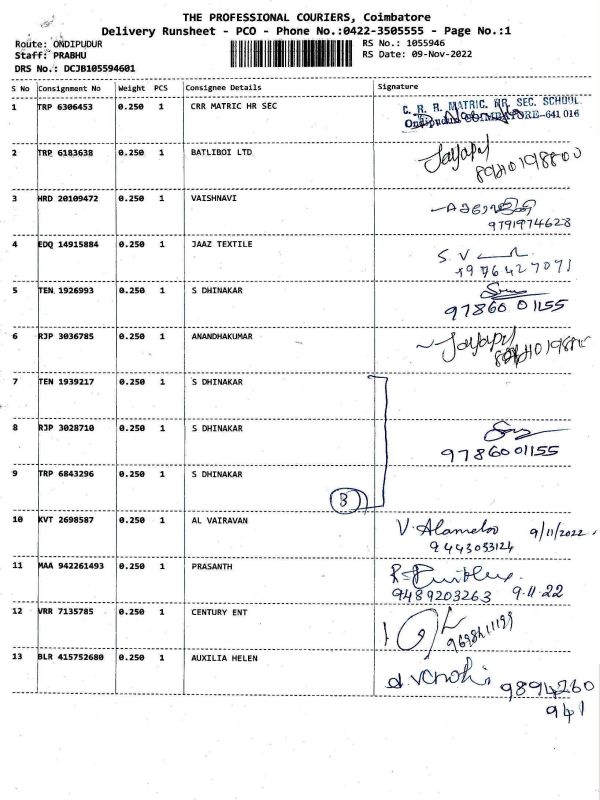 THE PROFESSIONAL COURIERS, Coimbatore
Delivery Runsheet - PCO - Phone No.:0422-3505555 - Page No.:1
Route: ONDIPUDUR RS No.: 1055946
Staff: PRABHU RS Date: 09-Nov-2022
DRS No.: DCJB105594601
S No Consignment No Weight PCS Consignee Details Signature
1 TRP 6306453 0.250 1 CRR MATRIC HR SEC C. R. R. MATRIC. HR. SEC. SCHOOL
Ondipudur COIMBATORE-641 016
2 TRP 6183638 0.250 1 BATLIBOI LTD Jayapal
3 HRD 20109472 0.250 1 VAISHNAVI
9791974628
4 EDQ 14915884 0.250 1 JAAZ TEXTILE S. V
5 TEN 1926993 0.250 1 S DHINAKAR
97860 01155
6 RJP 3036785 0.250 1 ANANDHAKUMAR Jayapal
7 TEN 1939217 0.250 1 S DHINAKAR
8 RJP 3028710 0.250 1 S DHINAKAR
9786001155
9 TRP 6843296 0.250 1 S DHINAKAR
3
10 KVT 2698587 0.250 1 AL VAIRAVAN V. Alamelu 9/11/2022
9443053124
11 MAA 942261493 0.250 1 PRASANTH
9489203263 9.11.22
12 VRR 7135785 0.250 1 CENTURY ENT
13 BLR 415752680 0.250 1 AUXILIA HELEN
9894260
941